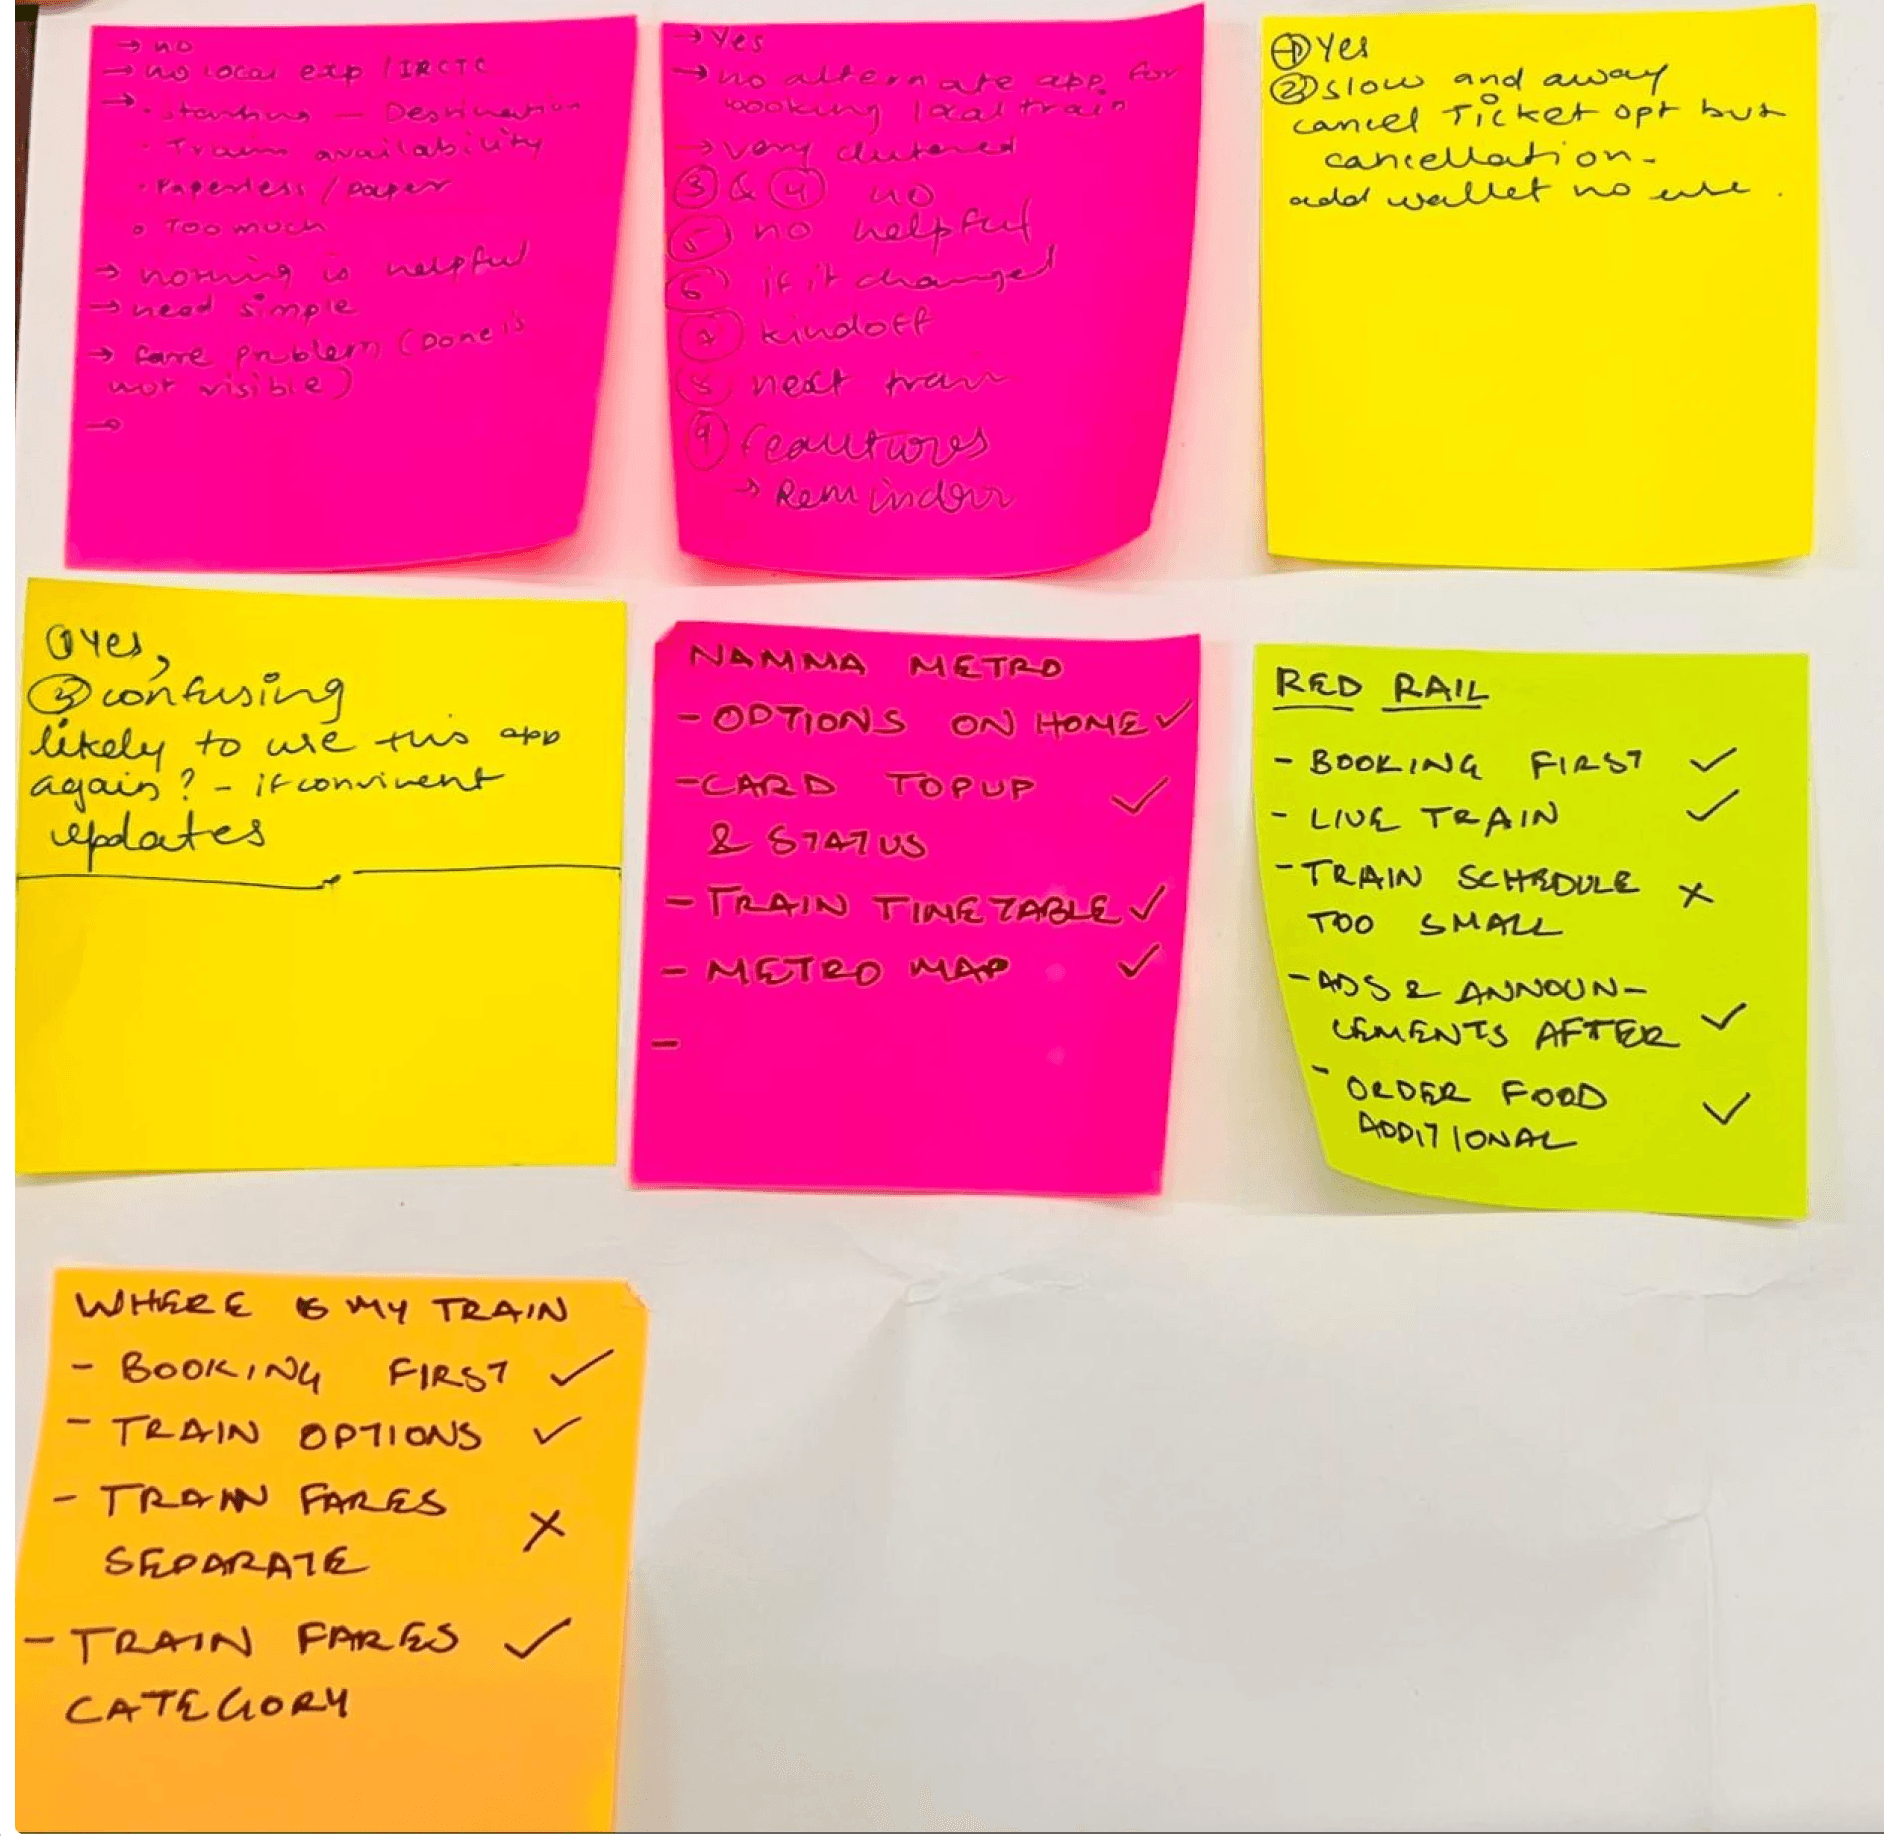 → no
→ no local exp / IRCTC
→ . starting - Destination
. Trains availability
. Paperless / paper
. Too much
→ nothing is helpful
→ need simple
→ fare problem (Done is
not visible)
→
→ Yes
→ no alternate app for
booking local train
→ very clutered
③ & ④ no
⑤ no helpful
⑥ if it changed
⑦ kindoff
⑧ next train
⑨ feautures
→ Reminder
① Yes
② slow and away
cancel Ticket opt but
cancellation -
add wallet no use .
① Yes,
② confusing
likely to use this app
again? - if convinent
updates
NAMMA METRO
- OPTIONS ON HOME ✓
- CARD TOPUP ✓
& STATUS
- TRAIN TIMETABLE ✓
- METRO MAP ✓
-
RED RAIL
- BOOKING FIRST ✓
- LIVE TRAIN ✓
- TRAIN SCHEDULE ✗
TOO SMALL
- ADS & ANNOUN-
CEMENTS AFTER ✓
- ORDER FOOD ✓
ADDITIONAL
WHERE IS MY TRAIN
- BOOKING FIRST ✓
- TRAIN OPTIONS ✓
- TRAIN FARES ✗
SEPARATE
- TRAIN FARES ✓
CATEGORY